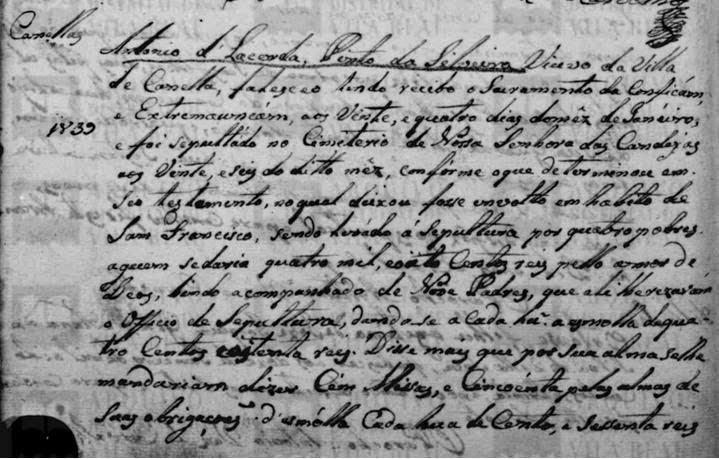 Canellas
Antonio d'Lacerda, Pinto da Silveira Viuvo da Villa
de Canella, faleceo tindo recibo o Sacramento da Conficám,
e Extremauncám, aos Vinte, e quatro dias do mêz de Janeiro,
1839
e foi sepultádo no Cimeterio de Nósa Senhora das Candeyas
aos Vinte, e seis do ditto mêz, conforme o que determinou em
seo testamento, no qual dixou fosse involto em habito de
Sam Francisco, sendo levádo á sepultura por quatro pobres.
a quem se daria quatro mil, e oito Centos reis pello amor de
Deos, hindo acompanhado de Nove Padres, que ali herezavám
o Officio de Sepultura, dando-se a cada hũ. a esmolla de qua-
tro Centos e oitenta reis. Disse mais que por sua alma se lhe
mandariam dizer Cem Missas, e Cincoénta pelas almas de
suas obrigaçoens d'esmólla Cada hua de Cento, e Sessenta reis